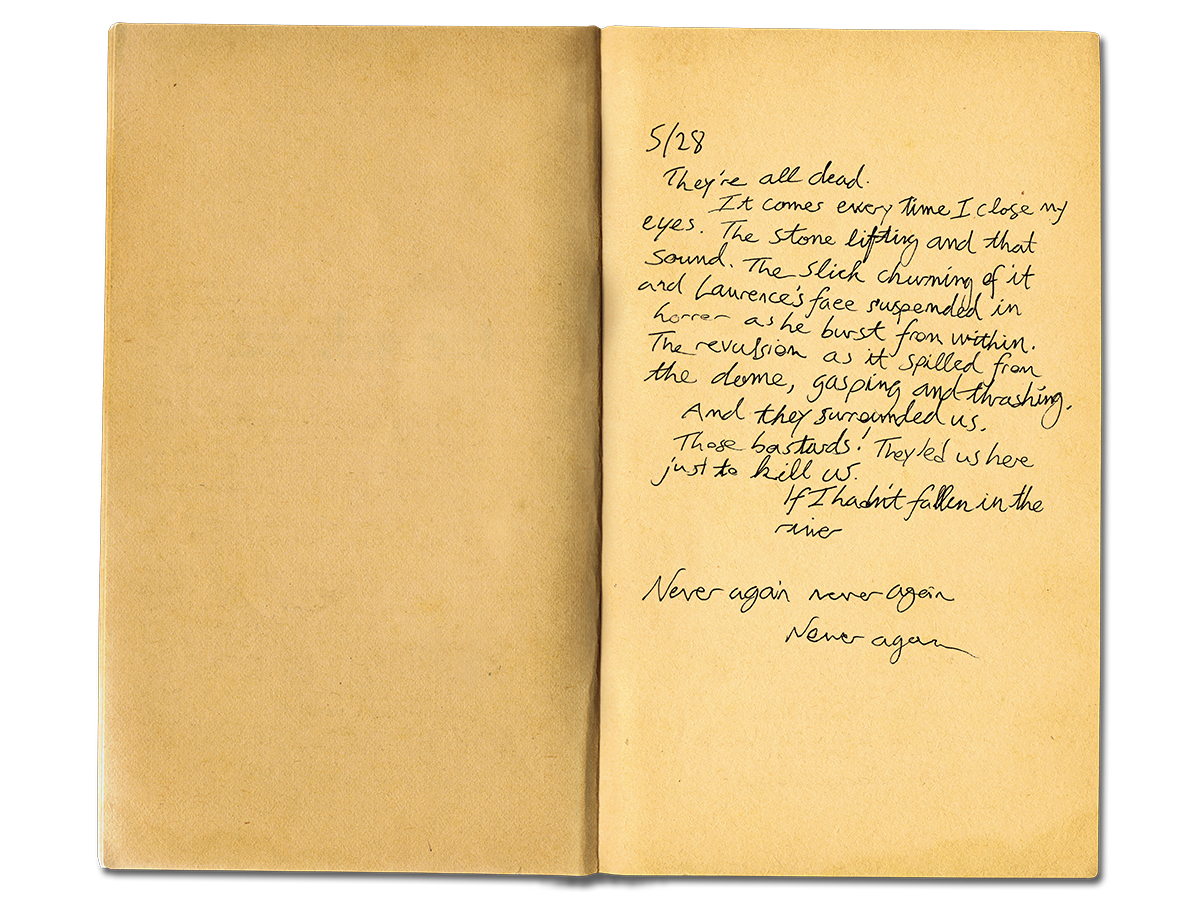 5/28
They're all dead.
It comes every time I close my
eyes. The stone lifting and that
sound. The slick churning of it
and Laurence's face suspended in
horror as he burst from within.
The revulsion as it spilled from
the dome, gasping and thrashing.
And they surrounded us.
Those bastards! They led us here
just to kill us.
If I hadn't fallen in the
river
Never again never again
Never again